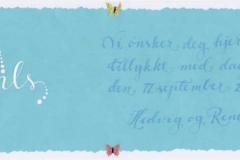 ils
Vi ønsker deg hjer
tillykke med da
den 17 september 2
Hedvig og Rene